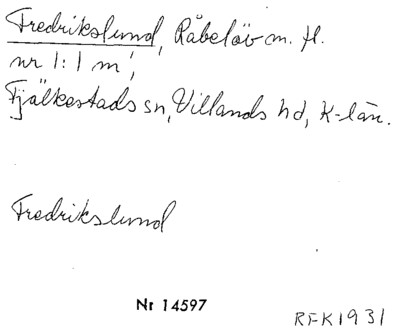 Fredrikslund, Råbelöv m. fl.
nr 1:1 m,
Fjälkestads sn, Villands hd, K-län.
Fredrikslund
Nr 14597
RFK 1931